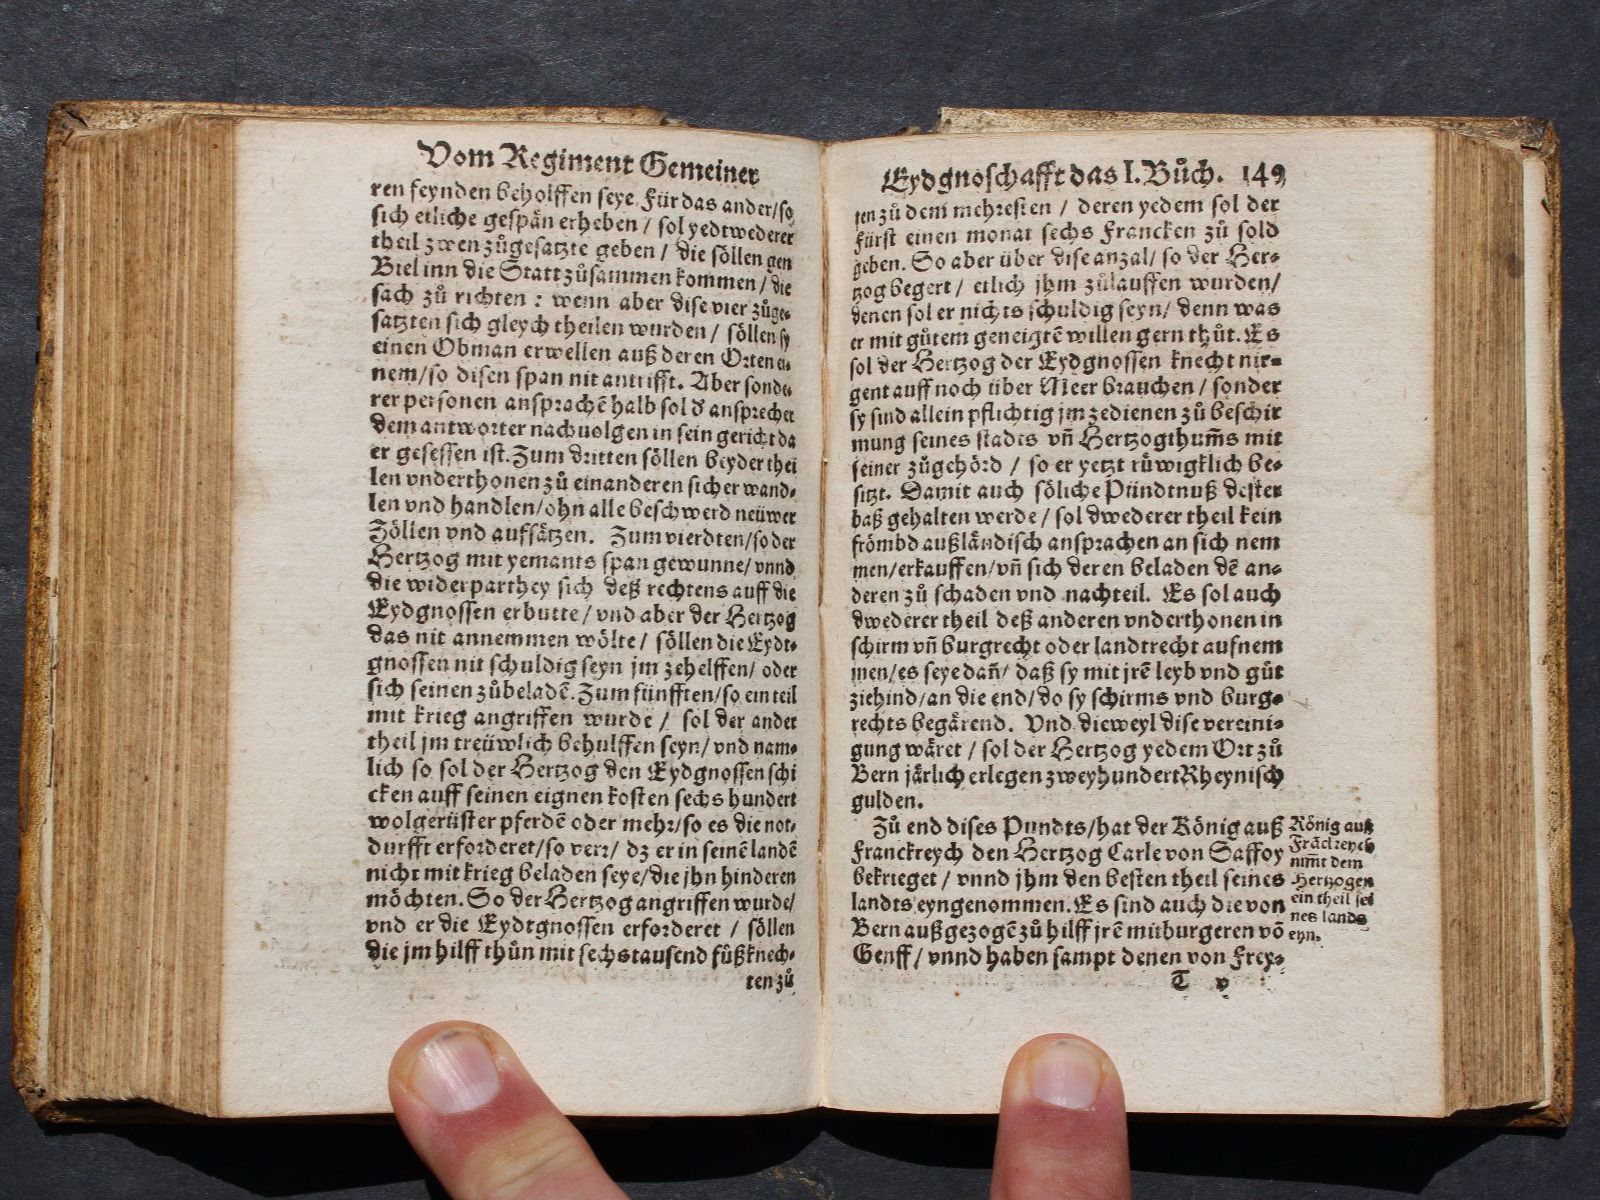 Vom Regiment Gemeiner
ren feynden beholffen seye. Für das ander/so
sich etliche gespän erheben / sol yedtwederer
theil zwen zůgesatzte geben / die söllen gen
Biel inn die Statt zůsammen kommen / die
sach zů richten : wenn aber dise vier zůge⸗
satzten sich gleych theilen wurden / söllen sy
einen Obman erwellen auß deren Orten ei⸗
nem/so disen span nit antrifft. Aber sonde⸗
rer personen ansprachē halb sol d' ansprecher
dem antworter nachuolgen in sein gericht da
er gesessen ist. Zum dritten söllen beyder thei
len vnderthonen zů einanderen sicher wand⸗
len vnd handlen/ohn alle beschwerd neüwer
Zöllen vnd aufsätzen. Zum vierdten/so der
Hertzog mit yemants span gewunne/ vnnd
die widerparthey sich deß rechtens auff die
Eydgnossen erbutte/ vnd aber der Hertzog
das nit annemmen wölte/ söllen die Eydt⸗
gnossen nit schuldig seyn jm zehelffen/ oder
sich seinen zůbeladē. Zum fünfften/so ein teil
mit krieg angriffen wurde / sol der ander
theil jm treüwlich behulffen seyn/ vnd nam⸗
lich so sol der Hertzog den Eydgnossen schi
cken auff seinen eignen kosten sechs hundert
wolgerüster pferdē oder mehr/so es die not⸗
durfft erforderet/so verr/ dz er in seinē landē
nicht mit krieg beladen seye/die jhn hinderen
möchten. So der Hertzog angriffen wurde/
vnd er die Eydtgnossen erforderet / söllen
die jm hilff thůn mit sechstausend fůßknech⸗
ten zů
Eydgnoschafft das I. Bůch. 149
ten zů dem mehresten / deren yedem sol der
Fürst einen monat sechs Francken zů sold
geben. So aber über dise anzal/ so der Her⸗
tzog begert / etlich jhm zůlauffen wurden/
denen sol er nichts schuldig seyn/ denn was
er mit gůtem geneigtē willen gern thůt. Es
sol der Hertzog der Eydgnossen knecht nir⸗
gent auff noch über Meer brauchen / sonder
sy sind allein pflichtig jm zedienen zů beschir
mung seines stadts vn̄ Hertzogthum̄s mit
seiner zůgehörd / so er yetzt rüwigklich be⸗
sitzt. Damit auch söliche Pündtnuß dester
baß gehalten werde / sol dwederer theil kein
frömbd außländisch ansprachen an sich nem
men/erkauffen/vn̄ sich deren beladen dē an⸗
deren zů schaden vnd nachteil. Es sol auch
dwederer theil deß anderen vnderthonen in
schirm vn̄ burgrecht oder landtrecht aufnem
men/es seye dan̄/ daß sy mit jrē leyb vnd gůt
ziehind/an die end/do sy schirms vnd burg⸗
rechts begärend. Vnd dieweyl dise vereini⸗
gung wäret / sol der Hertzog yedem Ort zů
Bern järlich erlegen zweyhundert Rheynisch
gulden.
Zů end dises Pundts/hat der König auß
Franckreych den Hertzog Carle von Saffoy
bekrieget / vnnd jhm den besten theil seines
landts eyngenommen. Es sind auch die von
Bern außgezogē zů hilff jrē mitburgeren vō
Genff / vnnd haben sampt denen von Frey⸗
T v
König auß
Frāckreych
nim̄t dem
Hertzogen
ein theil sei
nes lands
eyn.